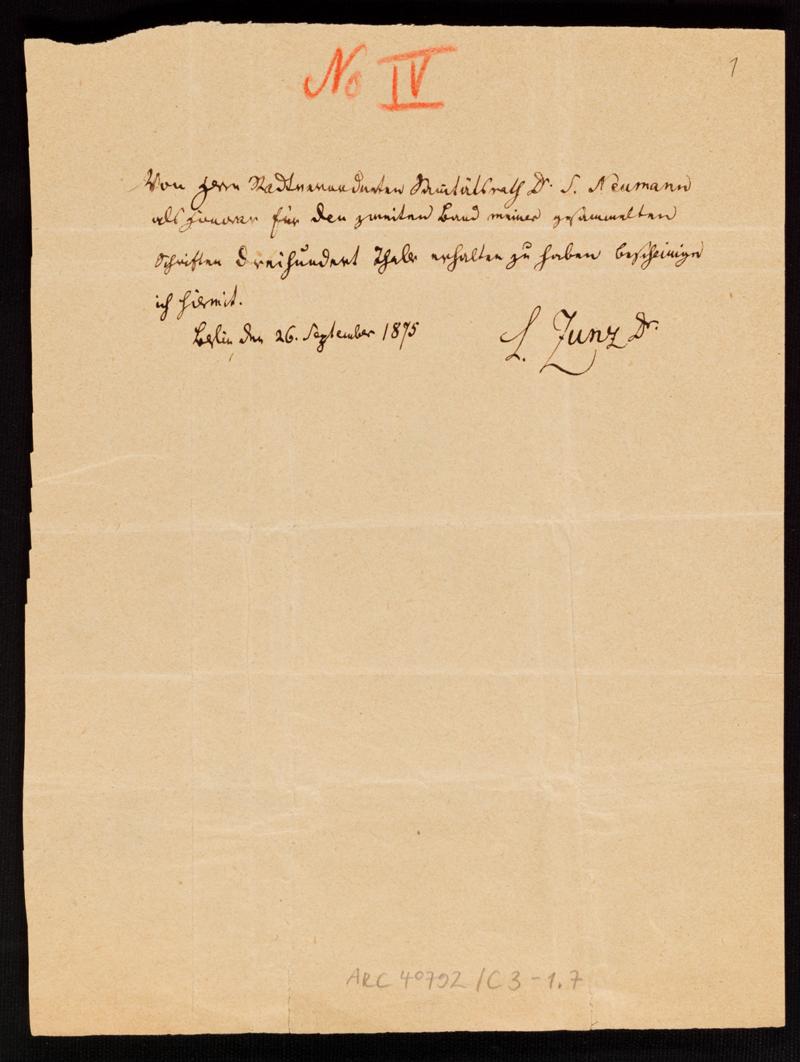 No IV
1
Von Herrn Stadtverordneten Sanitätsrath Dr. S. Neumann
als Honorar für den zweiten Band meiner gesammelten
Schriften dreihundert Thaler erhalten zu haben bescheinige
ich hiermit.
Berlin den 26. September 1875
L. Zunz Dr.
ARC 4°792/C3-1.7